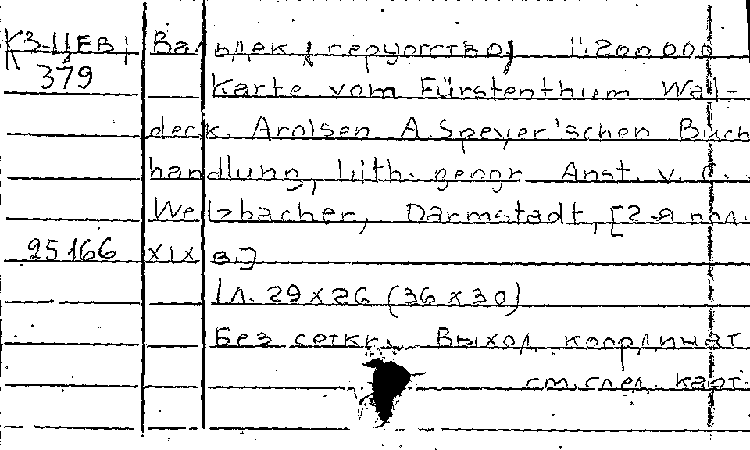 К3-ЦЕВ1 Вальдек (герцогство) 1:200 000
379 Karte vom Fürstenthum Wal-
deck. Arolsen A. Speyer'schen Buch
handlung, Lith. geogr. Anst. v. C.
Welzbacher, Darmstadt, [2-я пол.
25166 XIX в.]
1л. 29x26 (36x30)
Без сетки. Выход координат
см. след. карт.